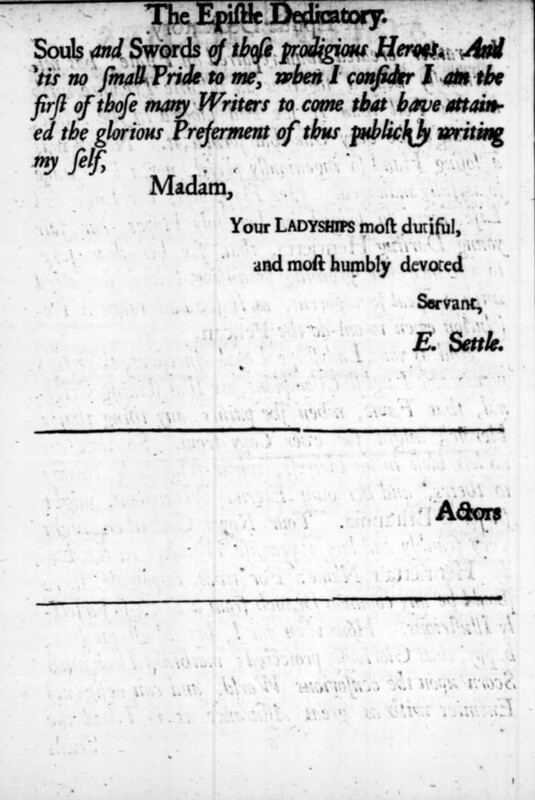 The Epistle Dedicatory.
Souls and Swords of thoſe prodigious Heroes. And
'tis no ſmall Pride to me, when I conſider I am the
firſt of thoſe many Writers to come that have attain-
ed the glorious Preferment of thus publickly writing
my ſelf,
Madam,
Your LADYSHIPS moſt dutiful,
and moſt humbly devoted
Servant,
E. Settle.
Actors